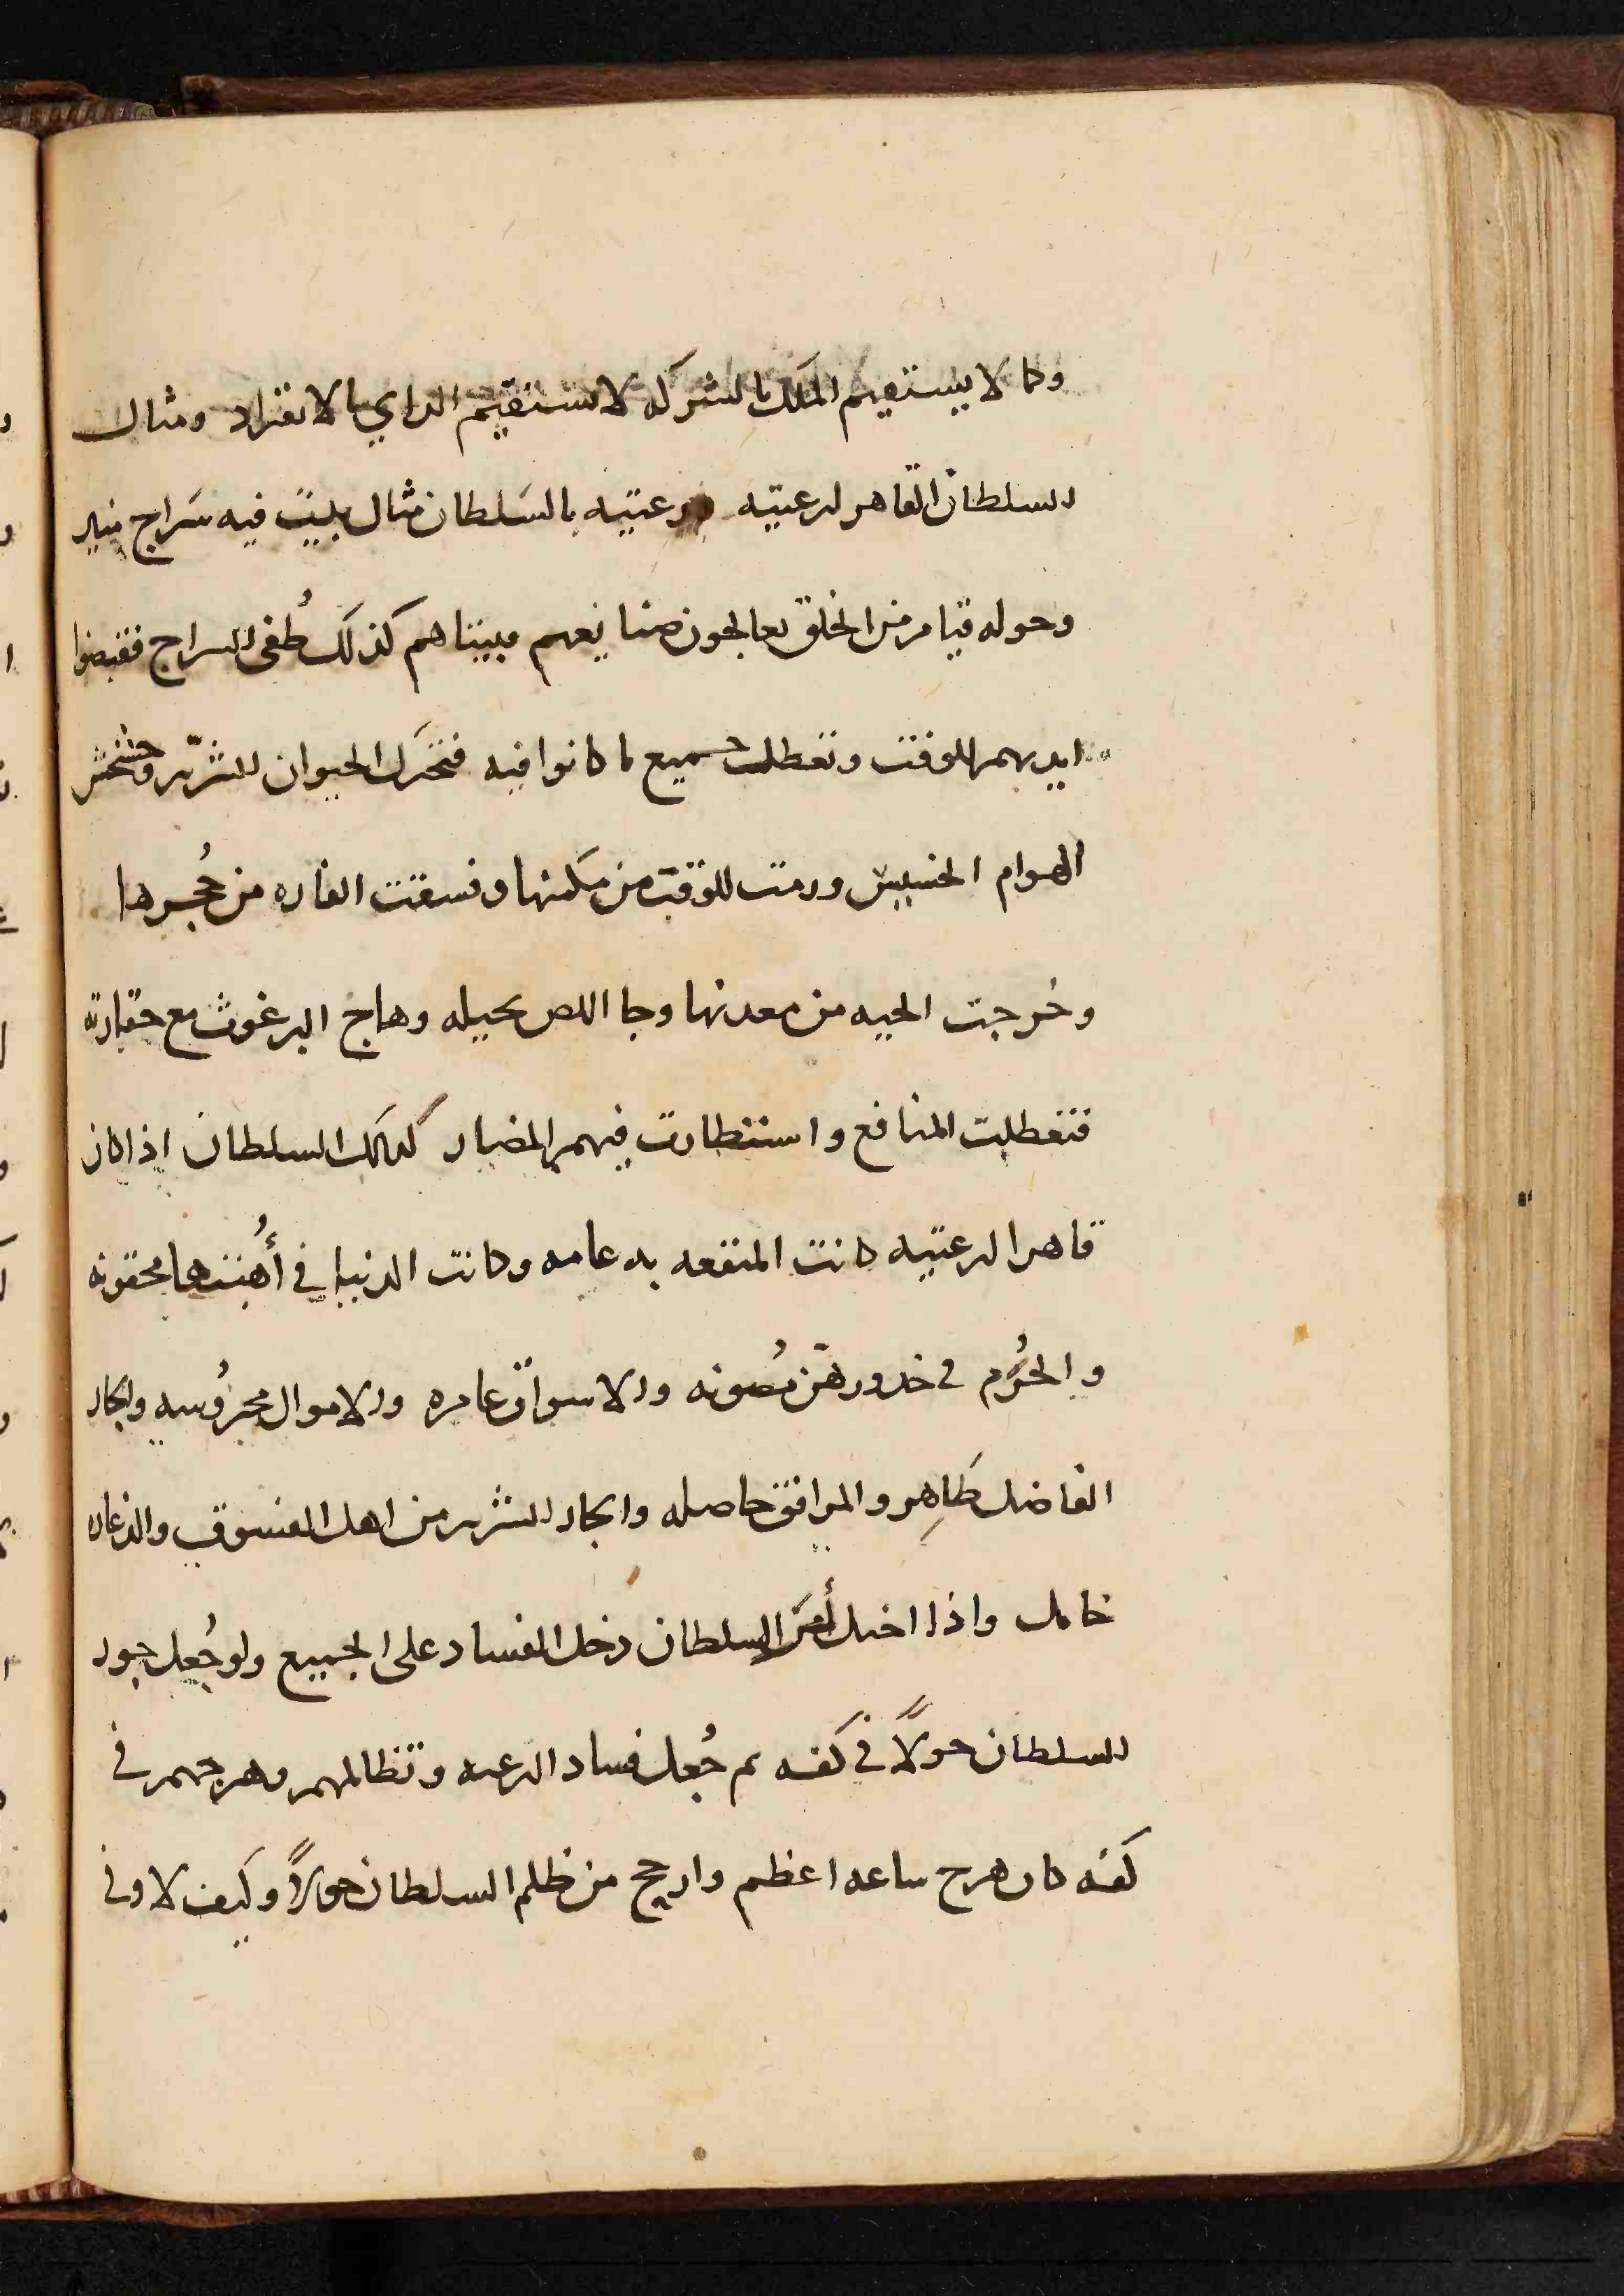 وكما لا يستقيم الملك بالشركه لا يستقيم الراي بالانفراد ومثال
السلطان القاهر لرعيته ورعيته بالسلطان مثال بيت فيه سَراج منير
وحوله قيام من الخلق يعالجون صنايعهم فبيناهم كذلك طُفى السراج فقبضوا
ايديهم للوقت وتعطلت جميع ما كانوا فيه فتحَرك الحيوان الشرّير وخشخش
الهوام الخسيس ودبت للوقت من مَكمنها وفسقت الفاره من حُجرها
وخرجت الحيه من معدنها وجا اللص بحيله وهاج البرغوث مع حقارته
فتعطلت المنافع واستطارت فيهم المضار كذلك السلطان اذا كان
قاهرا لرعيته كانت المنفعه به عامه وكانت الدنيا في أُهبُتها محقونه
والحُرم في خدورهنّ مُصونه والاسواق عامره والاموال محروُسه والجار
الفاضل ظاهِر والمرافق حاصله والجار الشرير من اهل الفسوق والذعاره
خامل واذا اختل أمرَ السلطان دخل الفساد على الجميع ولو جُعل جور
السلطان حولاً في كفه ثم جُعل فساد الرعيه وتظالمهم وهرجهم في
كفه كان هرج ساعه اعظم وارجح من ظلم السلطان حولاً وكيف لا وفي